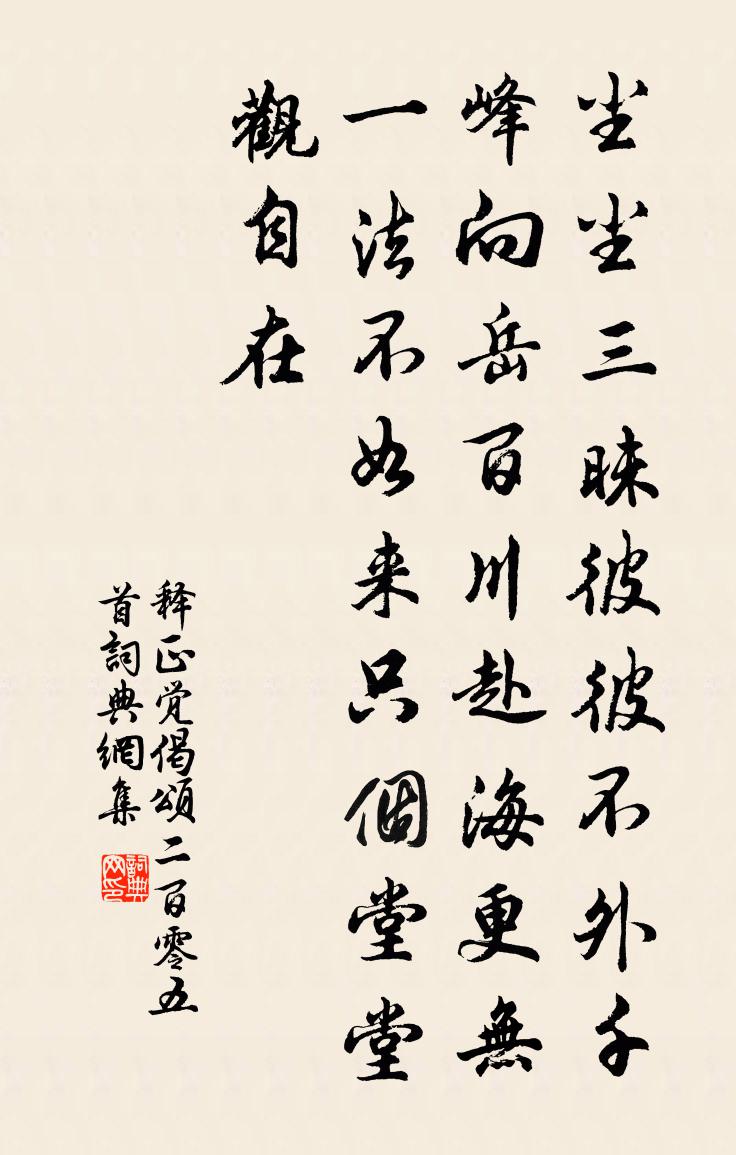 尘尘三昧彼彼不外千
峰向岳百川赴海更無
一法不如来只個堂堂
觀自在
释正觉偈頌二百零五
首詞典網集
詞典
网印